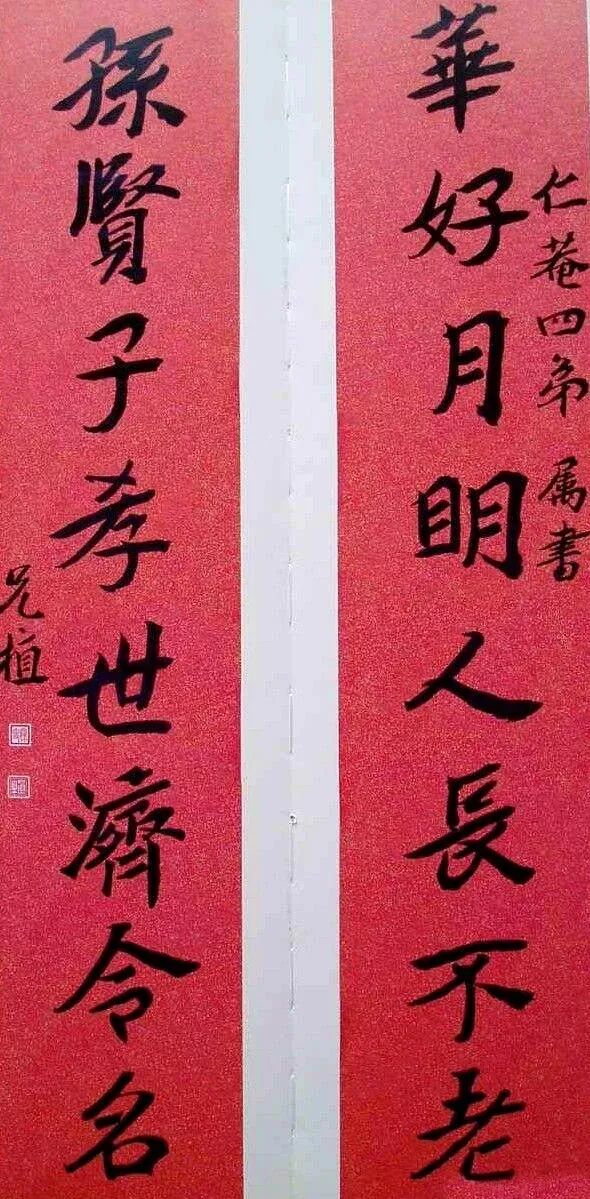 仁菴四弟 属書
華好月明人長不老
孫賢子孝世濟令名